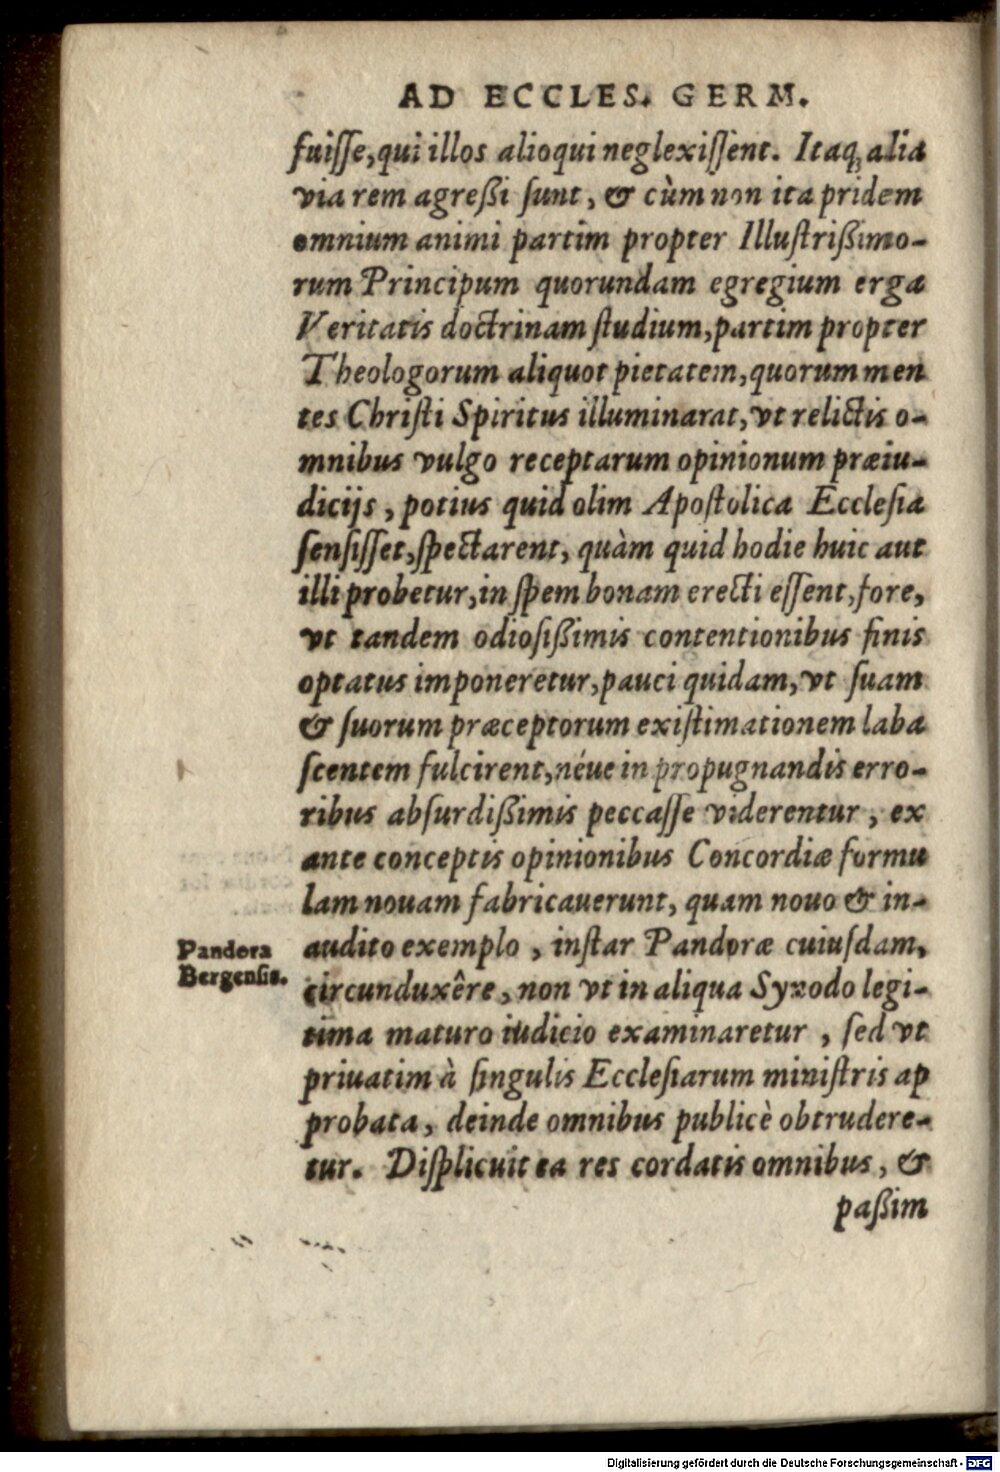 AD ECCLES. GERM.
fuiſſe, qui illos alioqui neglexiſſent. Itaq; alia
via rem agreßi ſunt, & cùm non ita pridem
omnium animi partim propter Illuſtrißimo-
rum Principum quorundam egregium erga
Veritatis doctrinam ſtudium, partim propter
Theologorum aliquot pietatem, quorum men
tes Chriſti Spiritus illuminarat, vt relictis o-
mnibus vulgo receptarum opinionum præiu-
dicijs, potius quid olim Apoſtolica Eccleſia
ſenſiſſet, ſpectarent, quàm quid hodie huic aut
illi probetur, in ſpem bonam erecti eſſent, fore,
vt tandem odioſißimis contentionibus finis
optatus imponeretur, pauci quidam, vt ſuam
& ſuorum præceptorum exiſtimationem laba
ſcentem fulcirent, néue in propugnandis erro-
ribus abſurdißimis peccaſſe viderentur, ex
ante conceptis opinionibus Concordiæ formu
lam nouam fabricauerunt, quam nouo & in-
Pandora
Bergenſis.
audito exemplo, inſtar Pandoræ cuiuſdam,
circunduxêre, non vt in aliqua Synodo legi-
tima maturo iudicio examinaretur, ſed vt
priuatim à ſingulis Eccleſiarum miniſtris ap
probata, deinde omnibus publicè obtrudere-
tur. Diſplicuit ea res cordatis omnibus, &
paßim
Digitalisierung gefördert durch die Deutsche Forschungsgemeinschaft - DFG